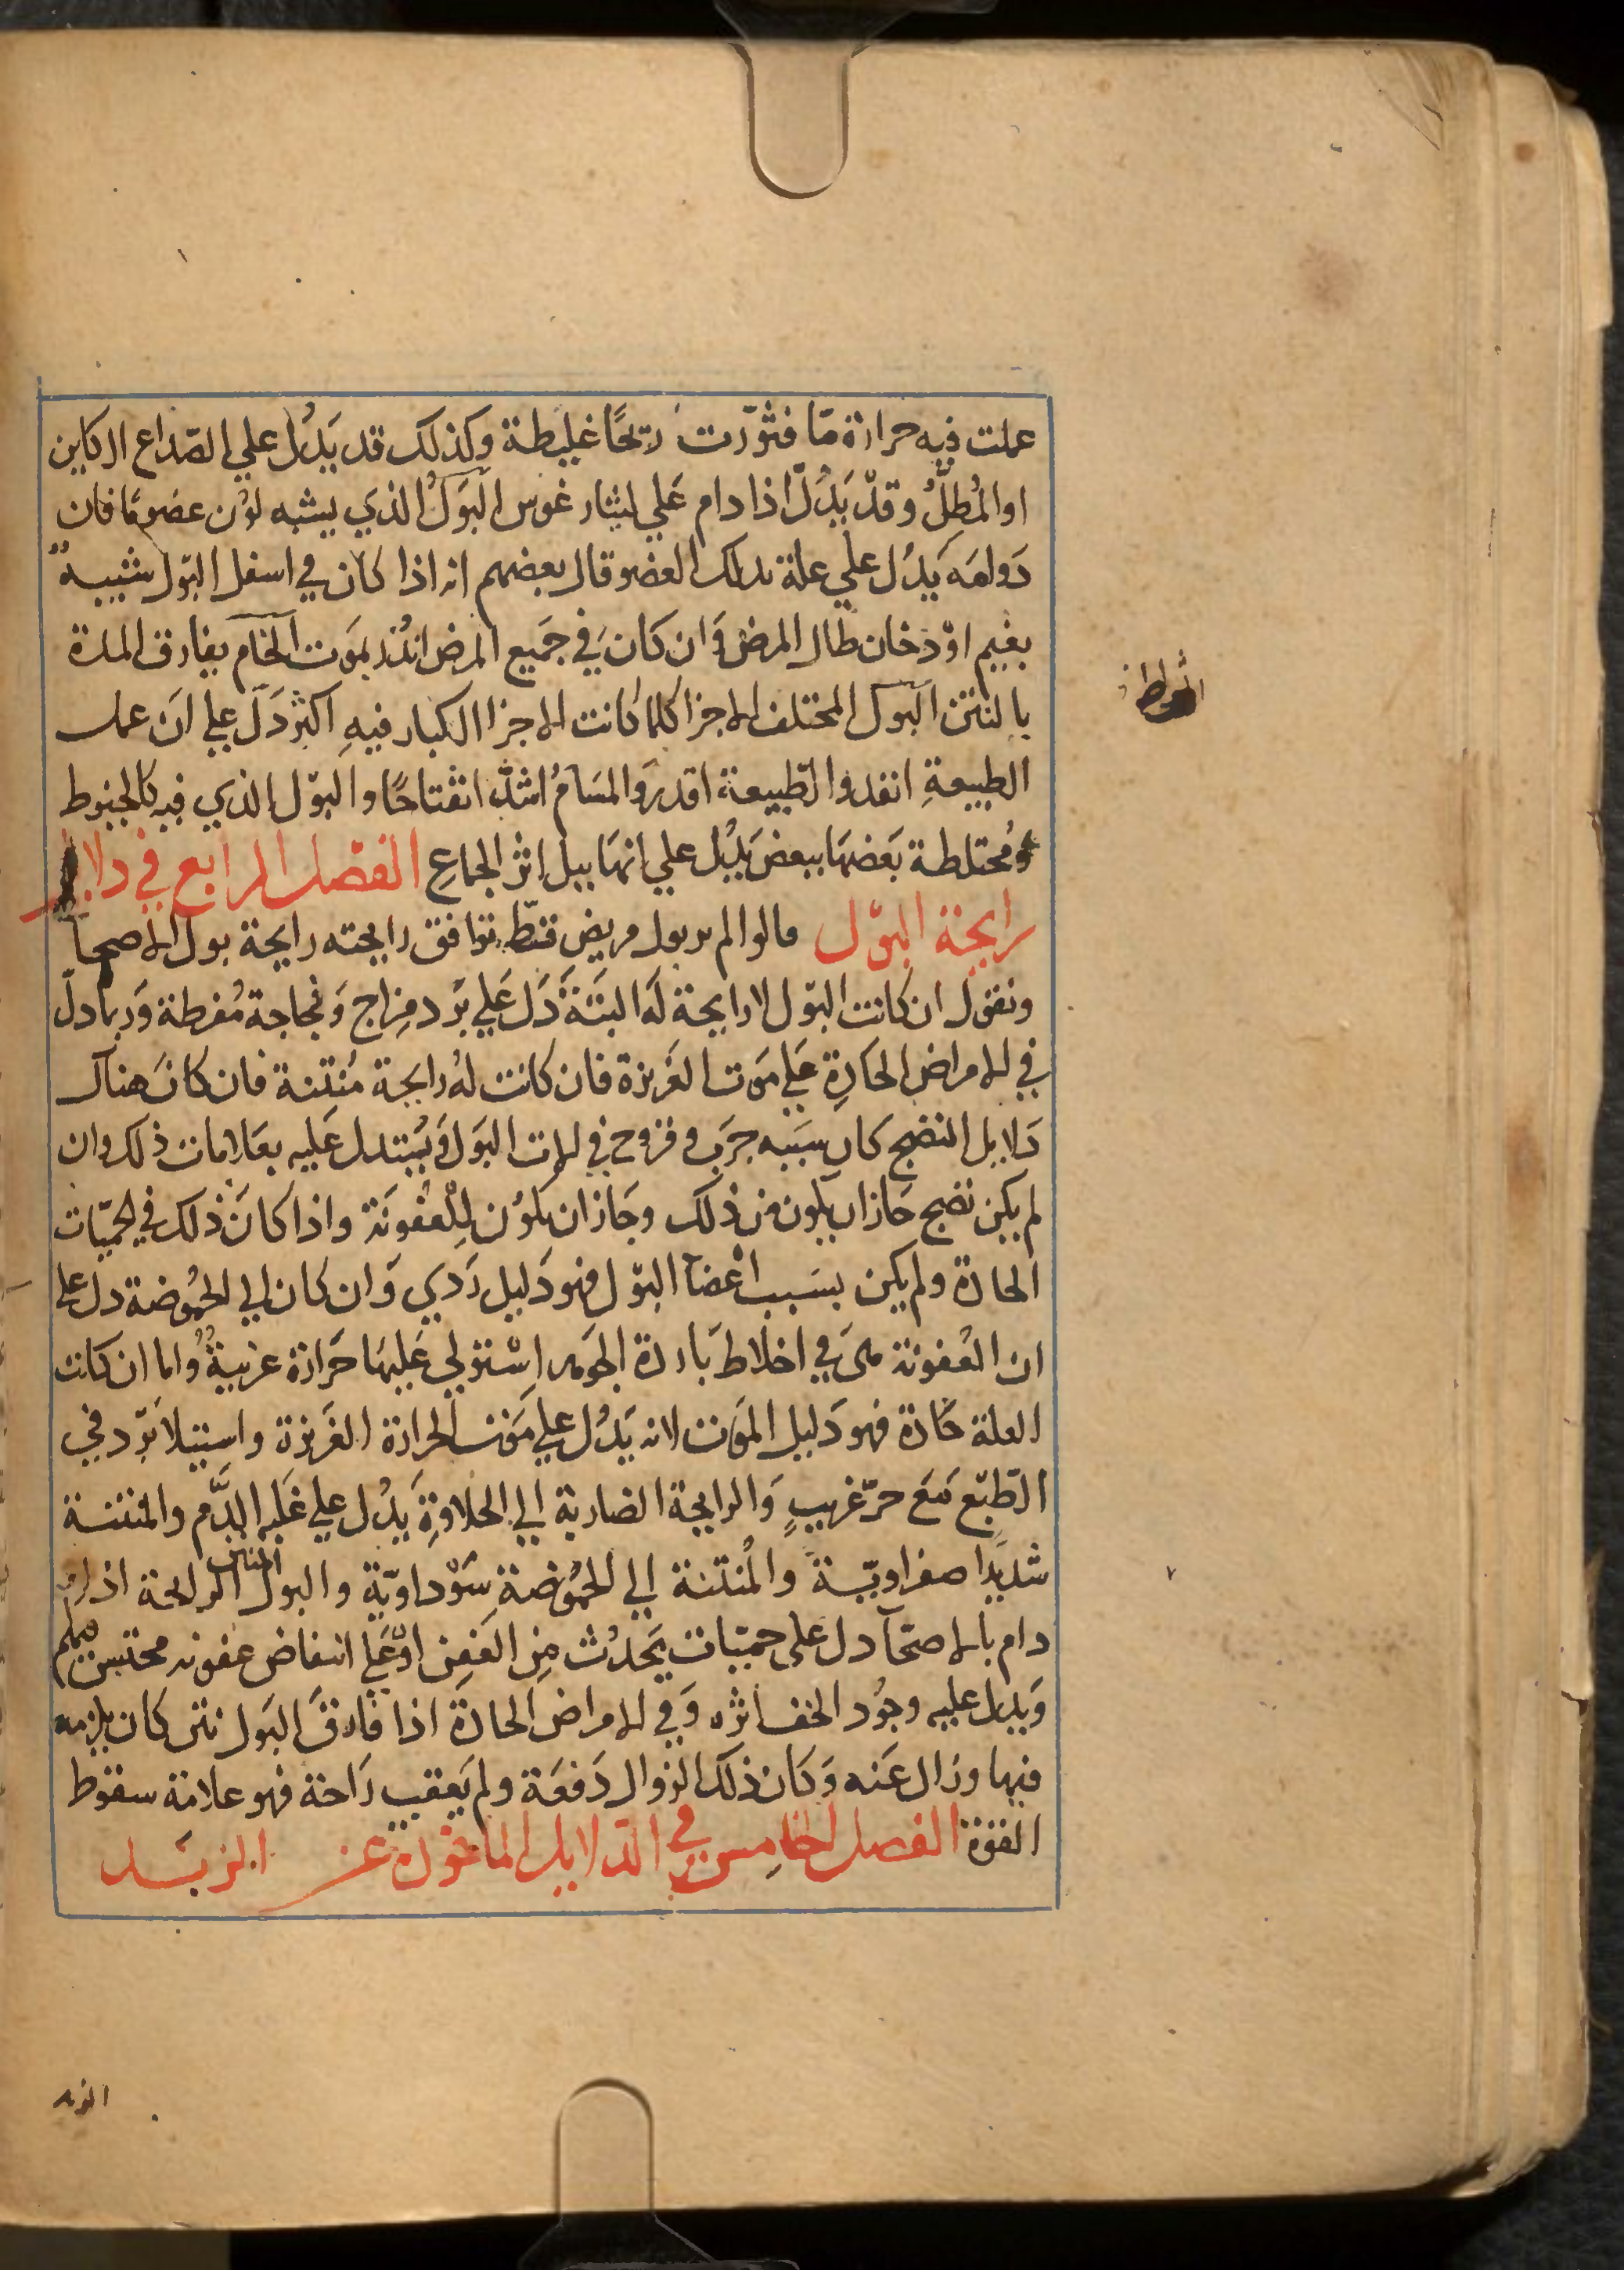 عملت فيه حرارة مّا فثوّرت ريحًا غليظة وكذلك قد يَدُل علي الصّداع الكاين
او المُطلّ وقدّ يَدُلّ اذا دام عَلي ليثارغوس البَولُ الذي يشبه لوْن عضو مّا فان
دَوامَه يَدُل علي علة بذلك العضو قال بعضهم انه اذا كان في اسفل البَول شبيبهٌ
بغيم اوْ دخان طال المرض وَان كان في جَميع المرض انذر بمَوت الخام يفارق المدة
بالنتن البَول المختلف الاجزا كلما كانت الاجزا الكبار فيهِ اكثر دَلّ علي ان عمل
الطبيعةِ انفد والطّبيعة اقدر وَالمسَامُ اشدّ انفتاحًا والبَوْل الذي فيه كالخيوط
ومُختلطة بَعضهَا ببعض يَدُل علي انهَا بيل اثر الجماعِ الفصل الرابع في دلايل
رايحة البوْل قالوا لم ير بول مريض قطّ توافق رايحته رايحة بول الاصحآ
ونقوْل ان كانت البوْل لا رايحة لَه البتةَ دَل عَلي برَد مِزاج وَفجاجة مُفرطة وَربما دلّ
في الامراض الحَادةِ عَلي مَوت الغَريزة فان كانت لهُ رايحة مُنتِنة فان كانَ هناك
دَلايل النضج كان سَببه جرَب وقروح في الات البَول وَيُستدل عَليه بعَلامات ذلك وان
لم يكن نضج جَاز ان يكون من ذلك وجَاز ان يكوْن لِلْعُفونَة واذا كانَ ذلك في الحميّات
الحادة ولم يكن بسَبب اعْضآ البوْل فهو دَليل رَدي وَان كان الي الحُمُوضة دل علي
ان العُفونة هىَ في اخلاط بَاردة الجوهر اِسْتولي عَليهَا حَرارة غريبةٌ واما ان كانت
العلة حَادة فهو دَليل المَوت لانه يَدُل علي مَوت الحرارة الغَريزة واستيلا بَرْد في
الطّبْع مَعَ حرّ غريبٍ وَالرايحة الضاربة الي الحلاوةِ يَدُل علي غَلبه الدَّم والمنتنة
شديدًا صفراويّة والمُنتنة الي الحُمُوضة سَوْداويّة والبول المنتن الرايحة اذا
دام بالاصحّآ دل علي حميّات يَحدُث مِن العَفِن اوْ عَلي انتفاض عفونه محتبس فيهم
وَيدل عليه وجُود الخف اثره وَفي الامراض الحادة اذا فارقَ البَول نتن كان يلزمه
فيها وزال عَنه وَكان ذلك الزوال دَفعَة ولم يَعقب رَاحة فهو علامة سقوط
القوة الفصل الخامِس في الدّلايل الماخوذه عن الزبَد
الزبد